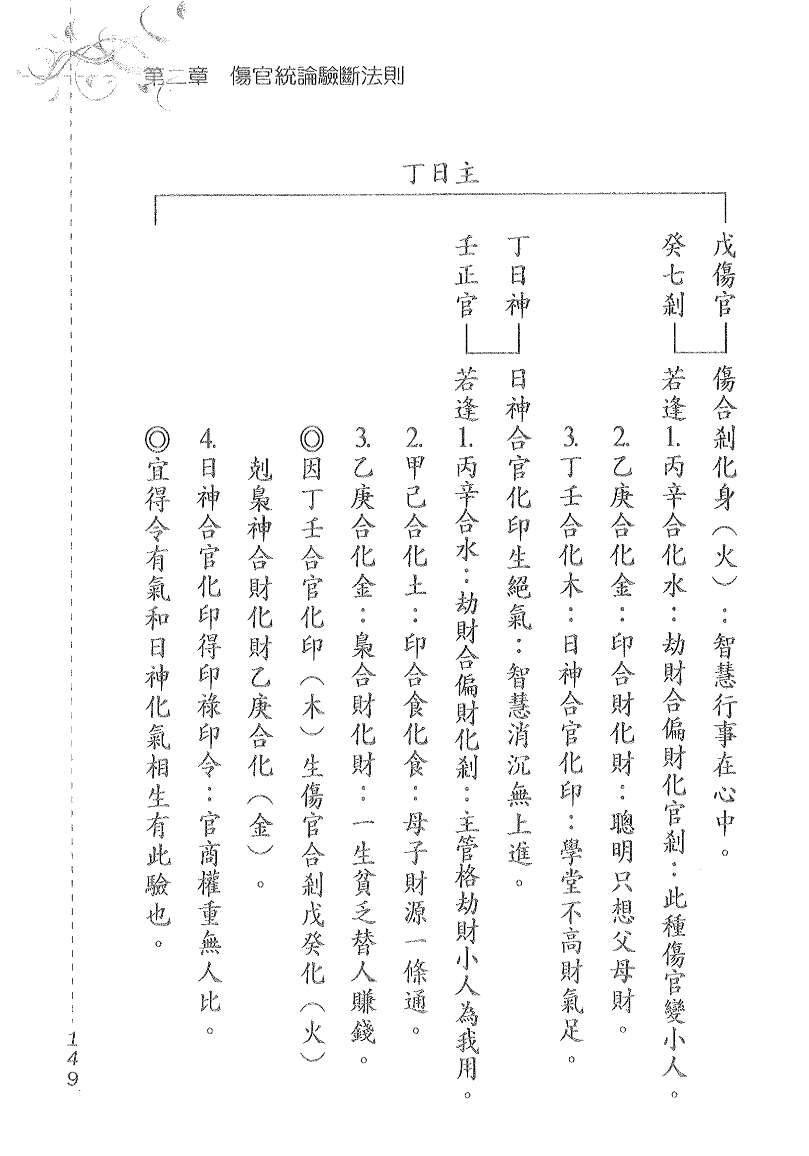 第二章　傷官統論驗斷法則
丁日主
戊傷官　傷合剎化身（火）：智慧行事在心中。
癸七剎　若逢1.丙辛合化水：劫財合偏財化官剎：此種傷官變小人。
2.乙庚合化金：印合財化財：聰明只想父母財。
3.丁壬合化木：日神合官化印：學堂不高財氣足。
丁日神　日神合官化印生絕氣：智慧消沉無上進。
壬正官　若逢1.丙辛合水：劫財合偏財化剎：主管格劫財小人為我用。
2.甲己合化土：印合食化食：母子財源一條通。
3.乙庚合化金：梟合財化財：一生貧乏替人賺錢。
◎因丁壬合官化印（木）生傷官合剎戊癸化（火）
剋梟神合財化財乙庚合化（金）。
4.日神合官化印得印祿印令：官商權重無人比。
◎宜得令有氣和日神化氣相生有此驗也。
149